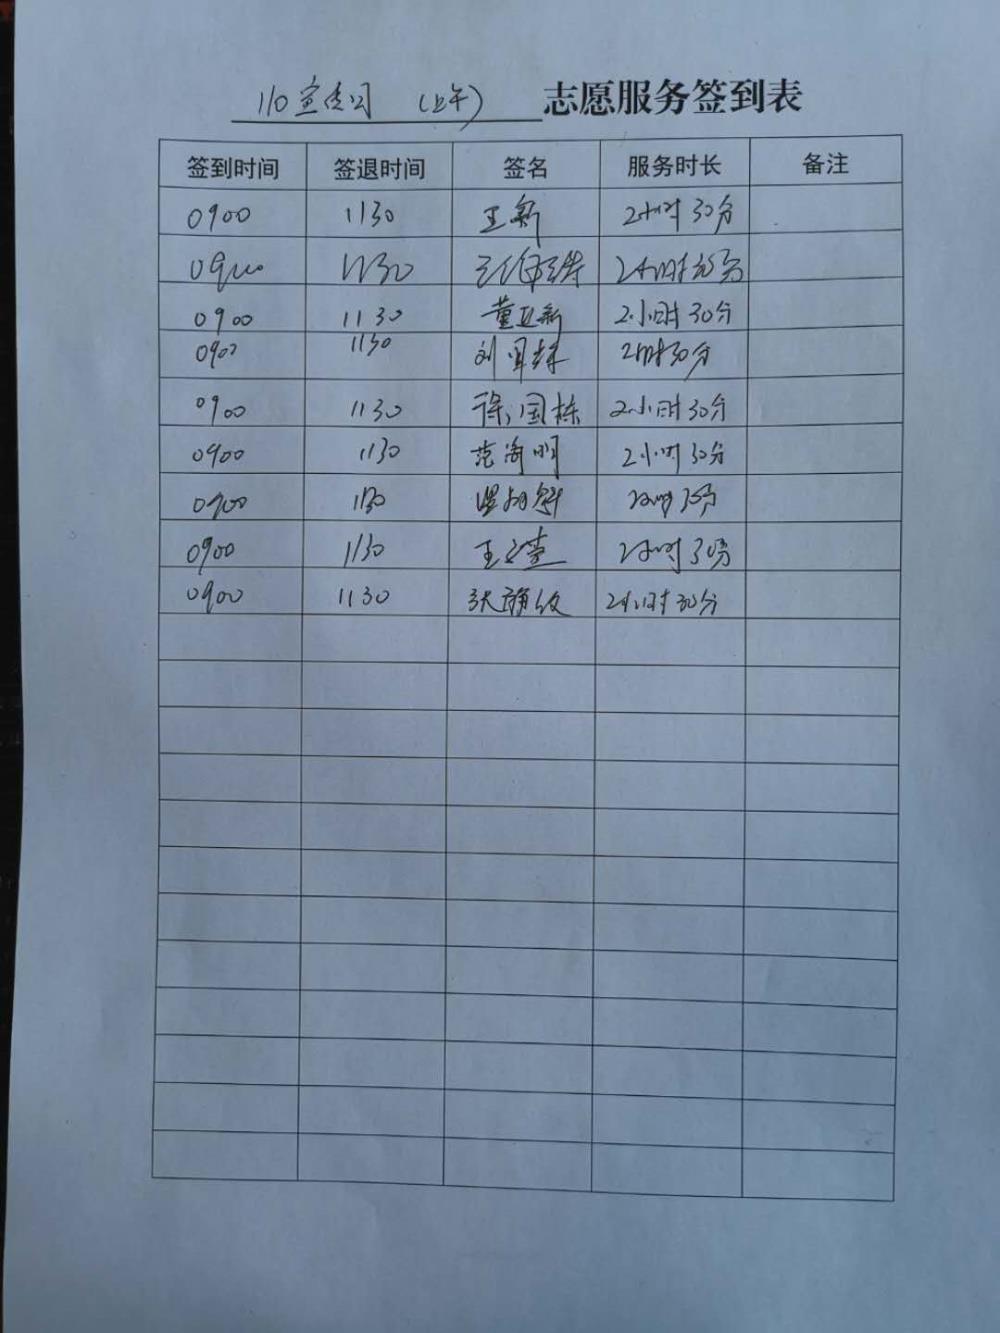 110宣传 (上午) 志愿服务签到表
签到时间 签退时间 签名 服务时长 备注
0900 1130 王新 2小时30分
0900 1130 2小时30分
0900 1130 董亚新 2小时30分
0900 1130 刘 2小时30分
0900 1130 徐国栋 2小时30分
0900 1130 范海明 2小时30分
0900 1130 2小时30分
0900 1130 王 2小时30分
0900 1130 张 2小时30分